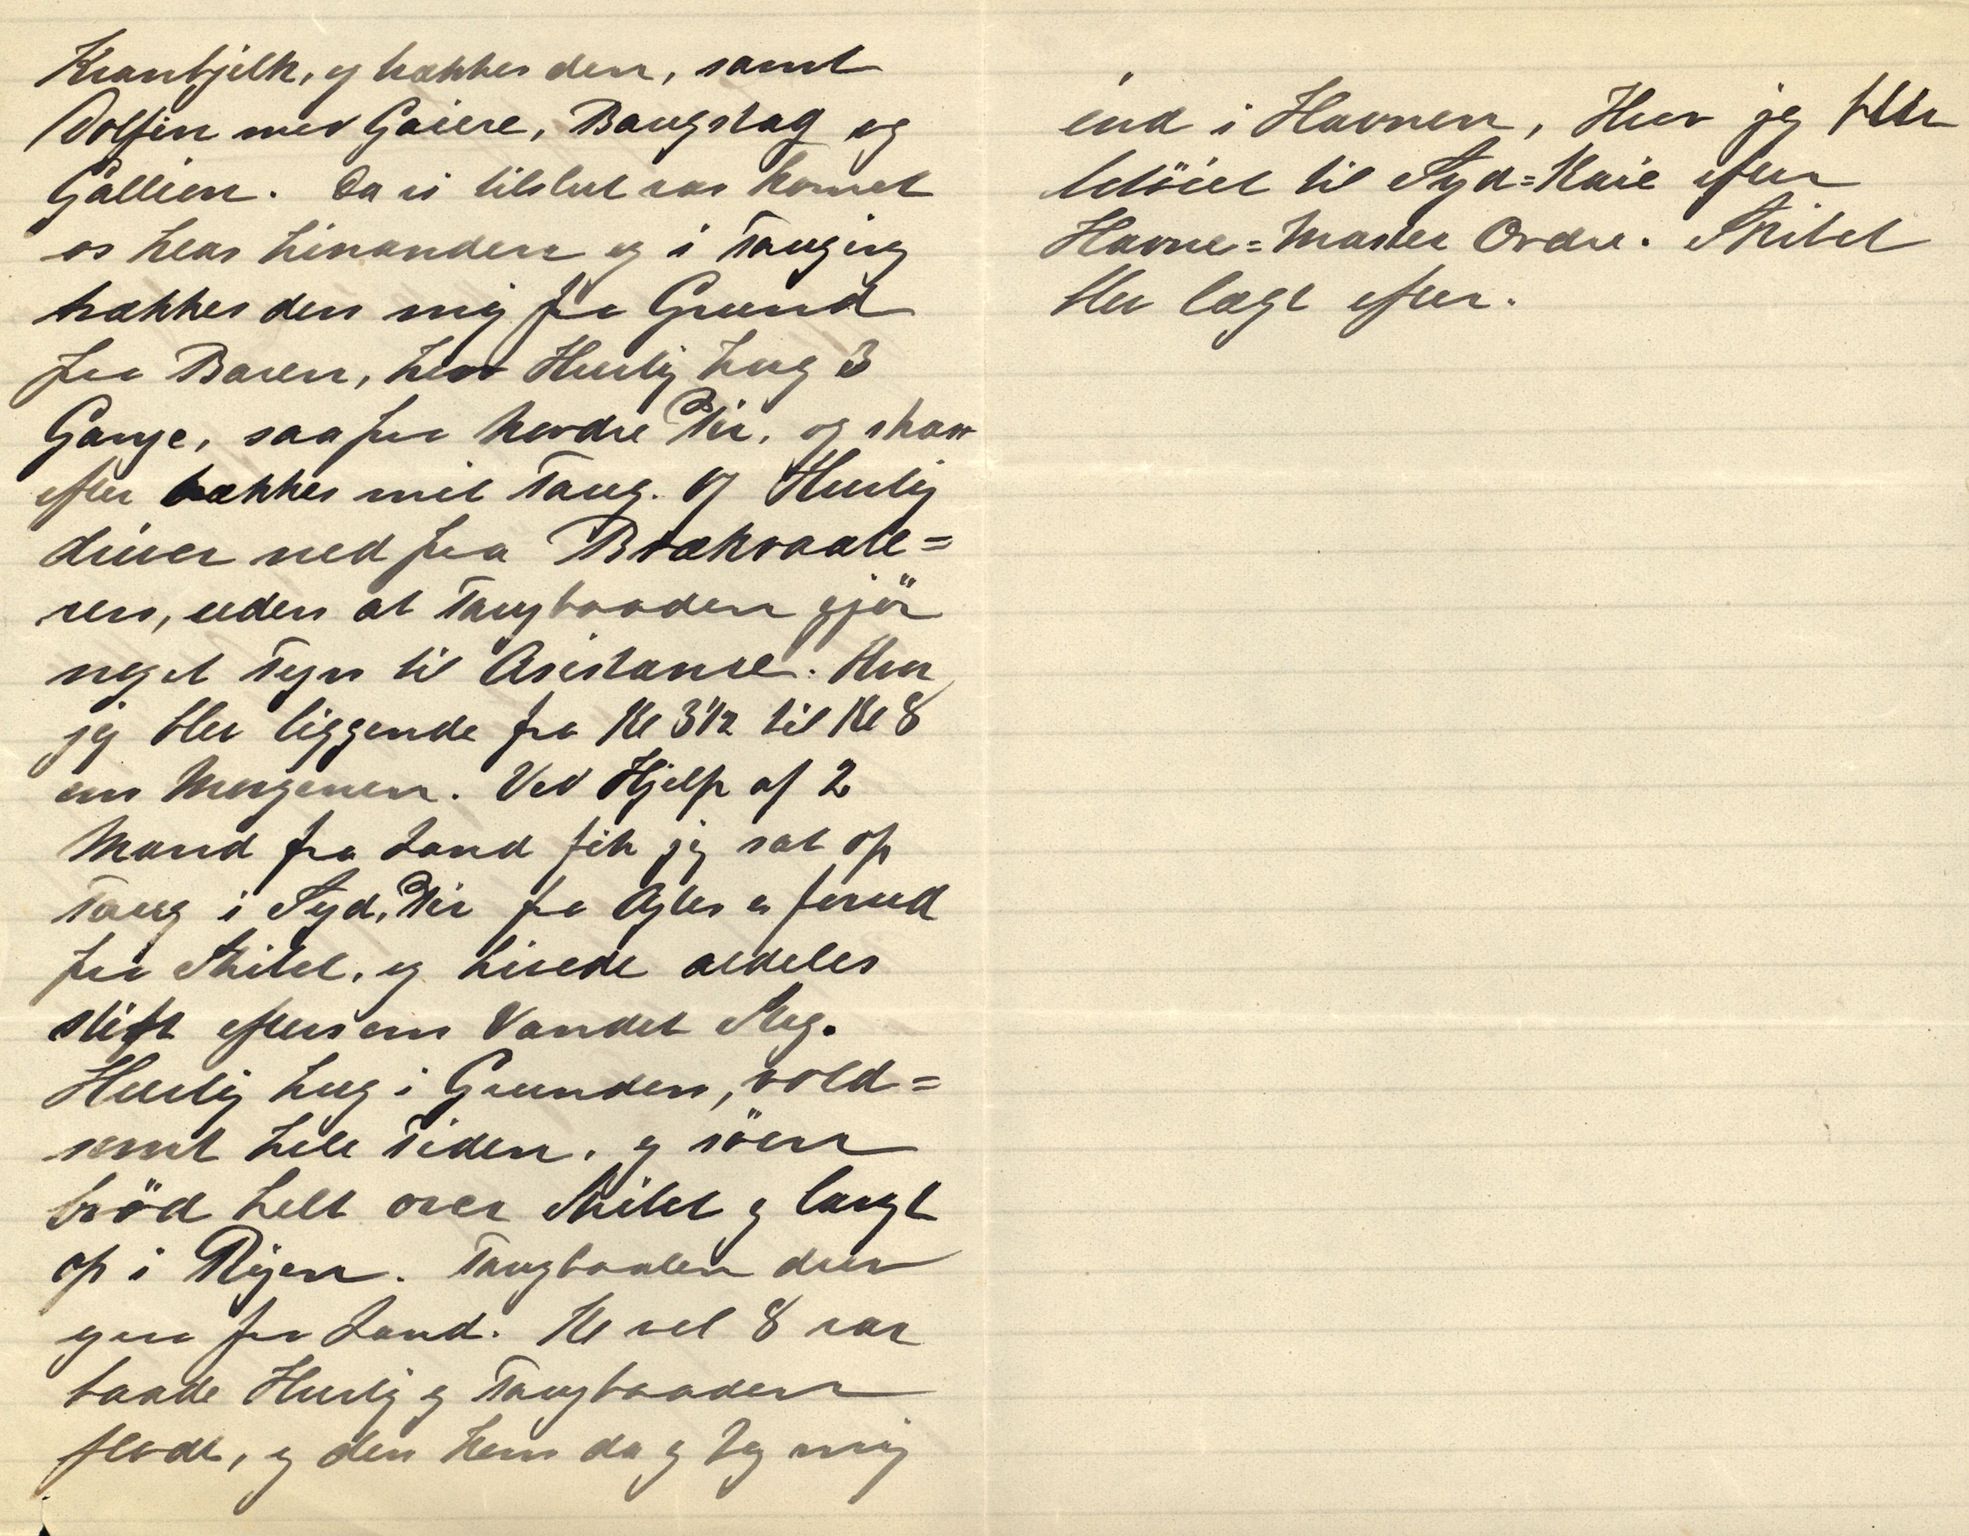 Kranbjelk, og brækker den, samt
Dolfin med Gaiere, Baugstag og
Gallion. Da vi tilslut var komet
os klar hinanden og i Tauging
trækker den mig paa Grund
paa Baren, hvor Hurtig hug 3
Gange, saa paa Nordre Pir, og strax
efter brækker mit Taug. og Hurtig
driver ned paa Brækvaate=
ren, uden at Taugbaaden gjör
noget Tegn til Asistance. Hvor
jeg blev liggende fra Kl 3½ til Kl 8
om Morgenen. Ved Hjelp af 2
Mand fra Land fik jeg sat op
Taug i Syd, Pir fra Agter o forud
fra Skibet, og hivede aldeles
stift eftersom Vandet Steg.
Hurtig hug i Grunden, vold=
somt hele Tiden, og söen
bröd helt over Skibet og langt
op i Rigen. Taugbaaden drev
ogsaa paa Land. Kl vel 8 var
baade Hurtig og Taugbaaden
flodt, og den kom da og tog mig
ind i Havnen, Hvor jeg blev
beföiet til Syd=Kaie efter
Havne=Master Ordre. Skibet
blev lægt efter.